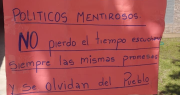 POLITICOS MENTIROSOS
NO pierdo el tiempo
siempre las mismas promesas
y se olvidan del Pueblo